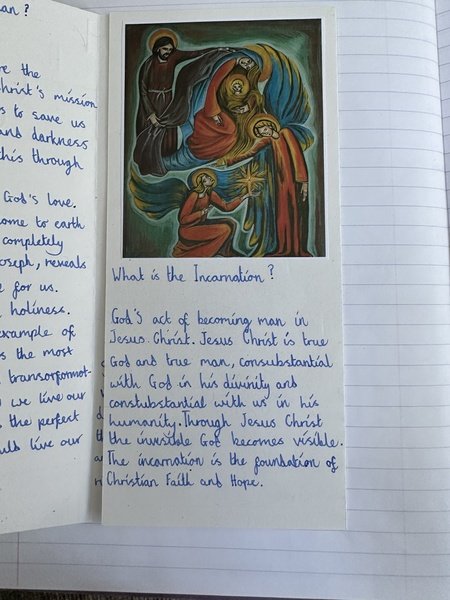 an ?
re the
hrist's mission
s to save us
and darkness
this through
God's love.
ome to earth
completely
oseph, reveals
e for us.
holiness.
example of
s the most
transorformat-
d we live our
the perfect
uld live our
What is the Incarnation ?
God's act of becoming man in
Jesus Christ. Jesus Christ is true
God and true man, consubstantial
with God in his divinity and
constubstantial with us in his
humanity. Through Jesus Christ
the invisible God becomes visible.
The incarnation is the foundation of
Christian Faith and Hope.